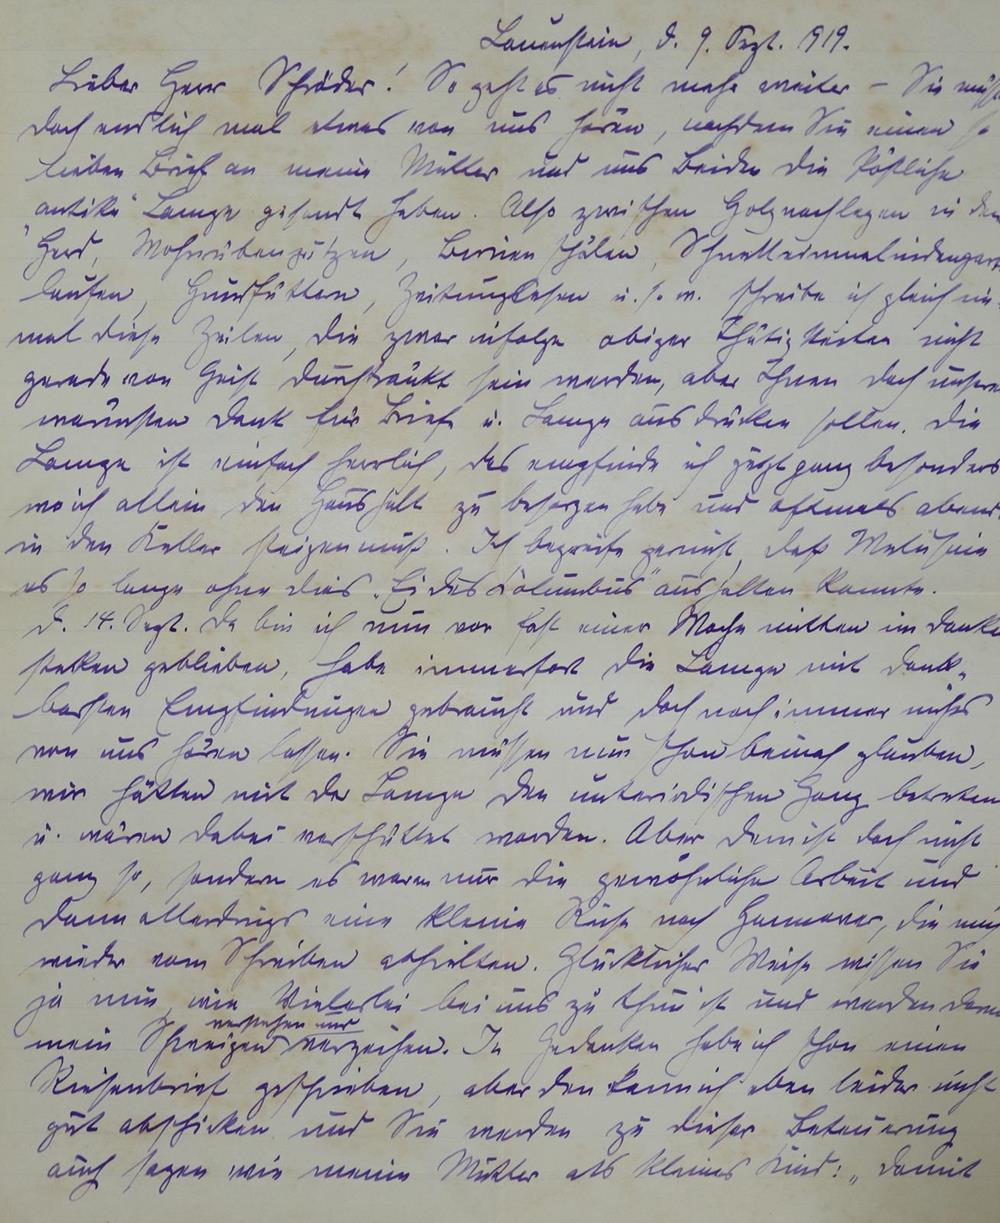 Lauenstein, d. 9. Sept. 1919.
Lieber Herr Schröder! So geht es nicht mehr weiter – Sie müssen
doch endlich mal etwas von uns hören, nachdem Sie einen so
lieben Brief an meine Mutter und uns Beiden die köstliche
"antike" Lampe gesandt haben. Also zwischen Holznachlegen in den
Herd, Mohrrübenputzen, Birnen schälen, Schnelleinmalindengarten
laufen, Hundfüttern, Zeitunglesen u.s.w. schreibe ich gleich ein-
mal diese Zeilen, die zwar infolge obiger Thätigkeiten nicht
gerade von Geist durchtränkt sein werden, aber Ihnen doch unseren
wärmsten Dank für Brief u. Lampe ausdrücken sollen. Die
Lampe ist einfach herrlich, das empfinde ich jetzt ganz besonders
wo ich allein den Haushalt zu besorgen habe und oftmals abends
in den Keller steigen muß. Ich begreife garnicht, daß Melusine
es so lange ohne dies „Ei des Kolumbus" aushalten konnte.
d. 14. Sept. Da bin ich nun vor fast einer Woche mitten im Danke
stecken geblieben, habe immerfort die Lampe mit dank-
barsten Empfindungen gebraucht und doch noch immer nichts
von uns hören lassen. Sie müssen nun schon beinah glauben,
wir hätten mit der Lampe den unterirdischen Gang betreten
u. wären dabei verschüttet worden. Aber dem ist doch nicht
ganz so, sondern es waren nur die gewöhnliche Arbeit und
dann allerdings eine kleine Reise nach Hannover, die mich
wieder vom Schreiben abhielten. Glücklicher Weise wissen Sie
ja nun, wie Vielerlei bei uns zu thun ist und werden dann
verstehen und
mein Schweigen verzeihen. In Gedanken habe ich schon einen
Riesenbrief geschrieben, aber den kann ich eben leider nicht
gut abschicken und Sie werden zu dieser Beteuerung
auch sagen wie meine Mutter als kleines Kind: „Damit